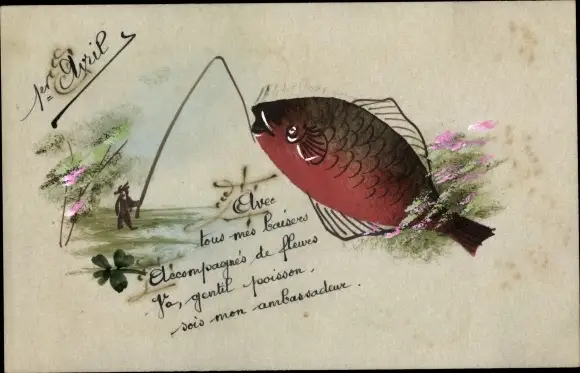 1er Avril
Avec
tous mes baisers
Accompagnés de fleurs
Va, gentil poisson,
sois mon ambassadeur.